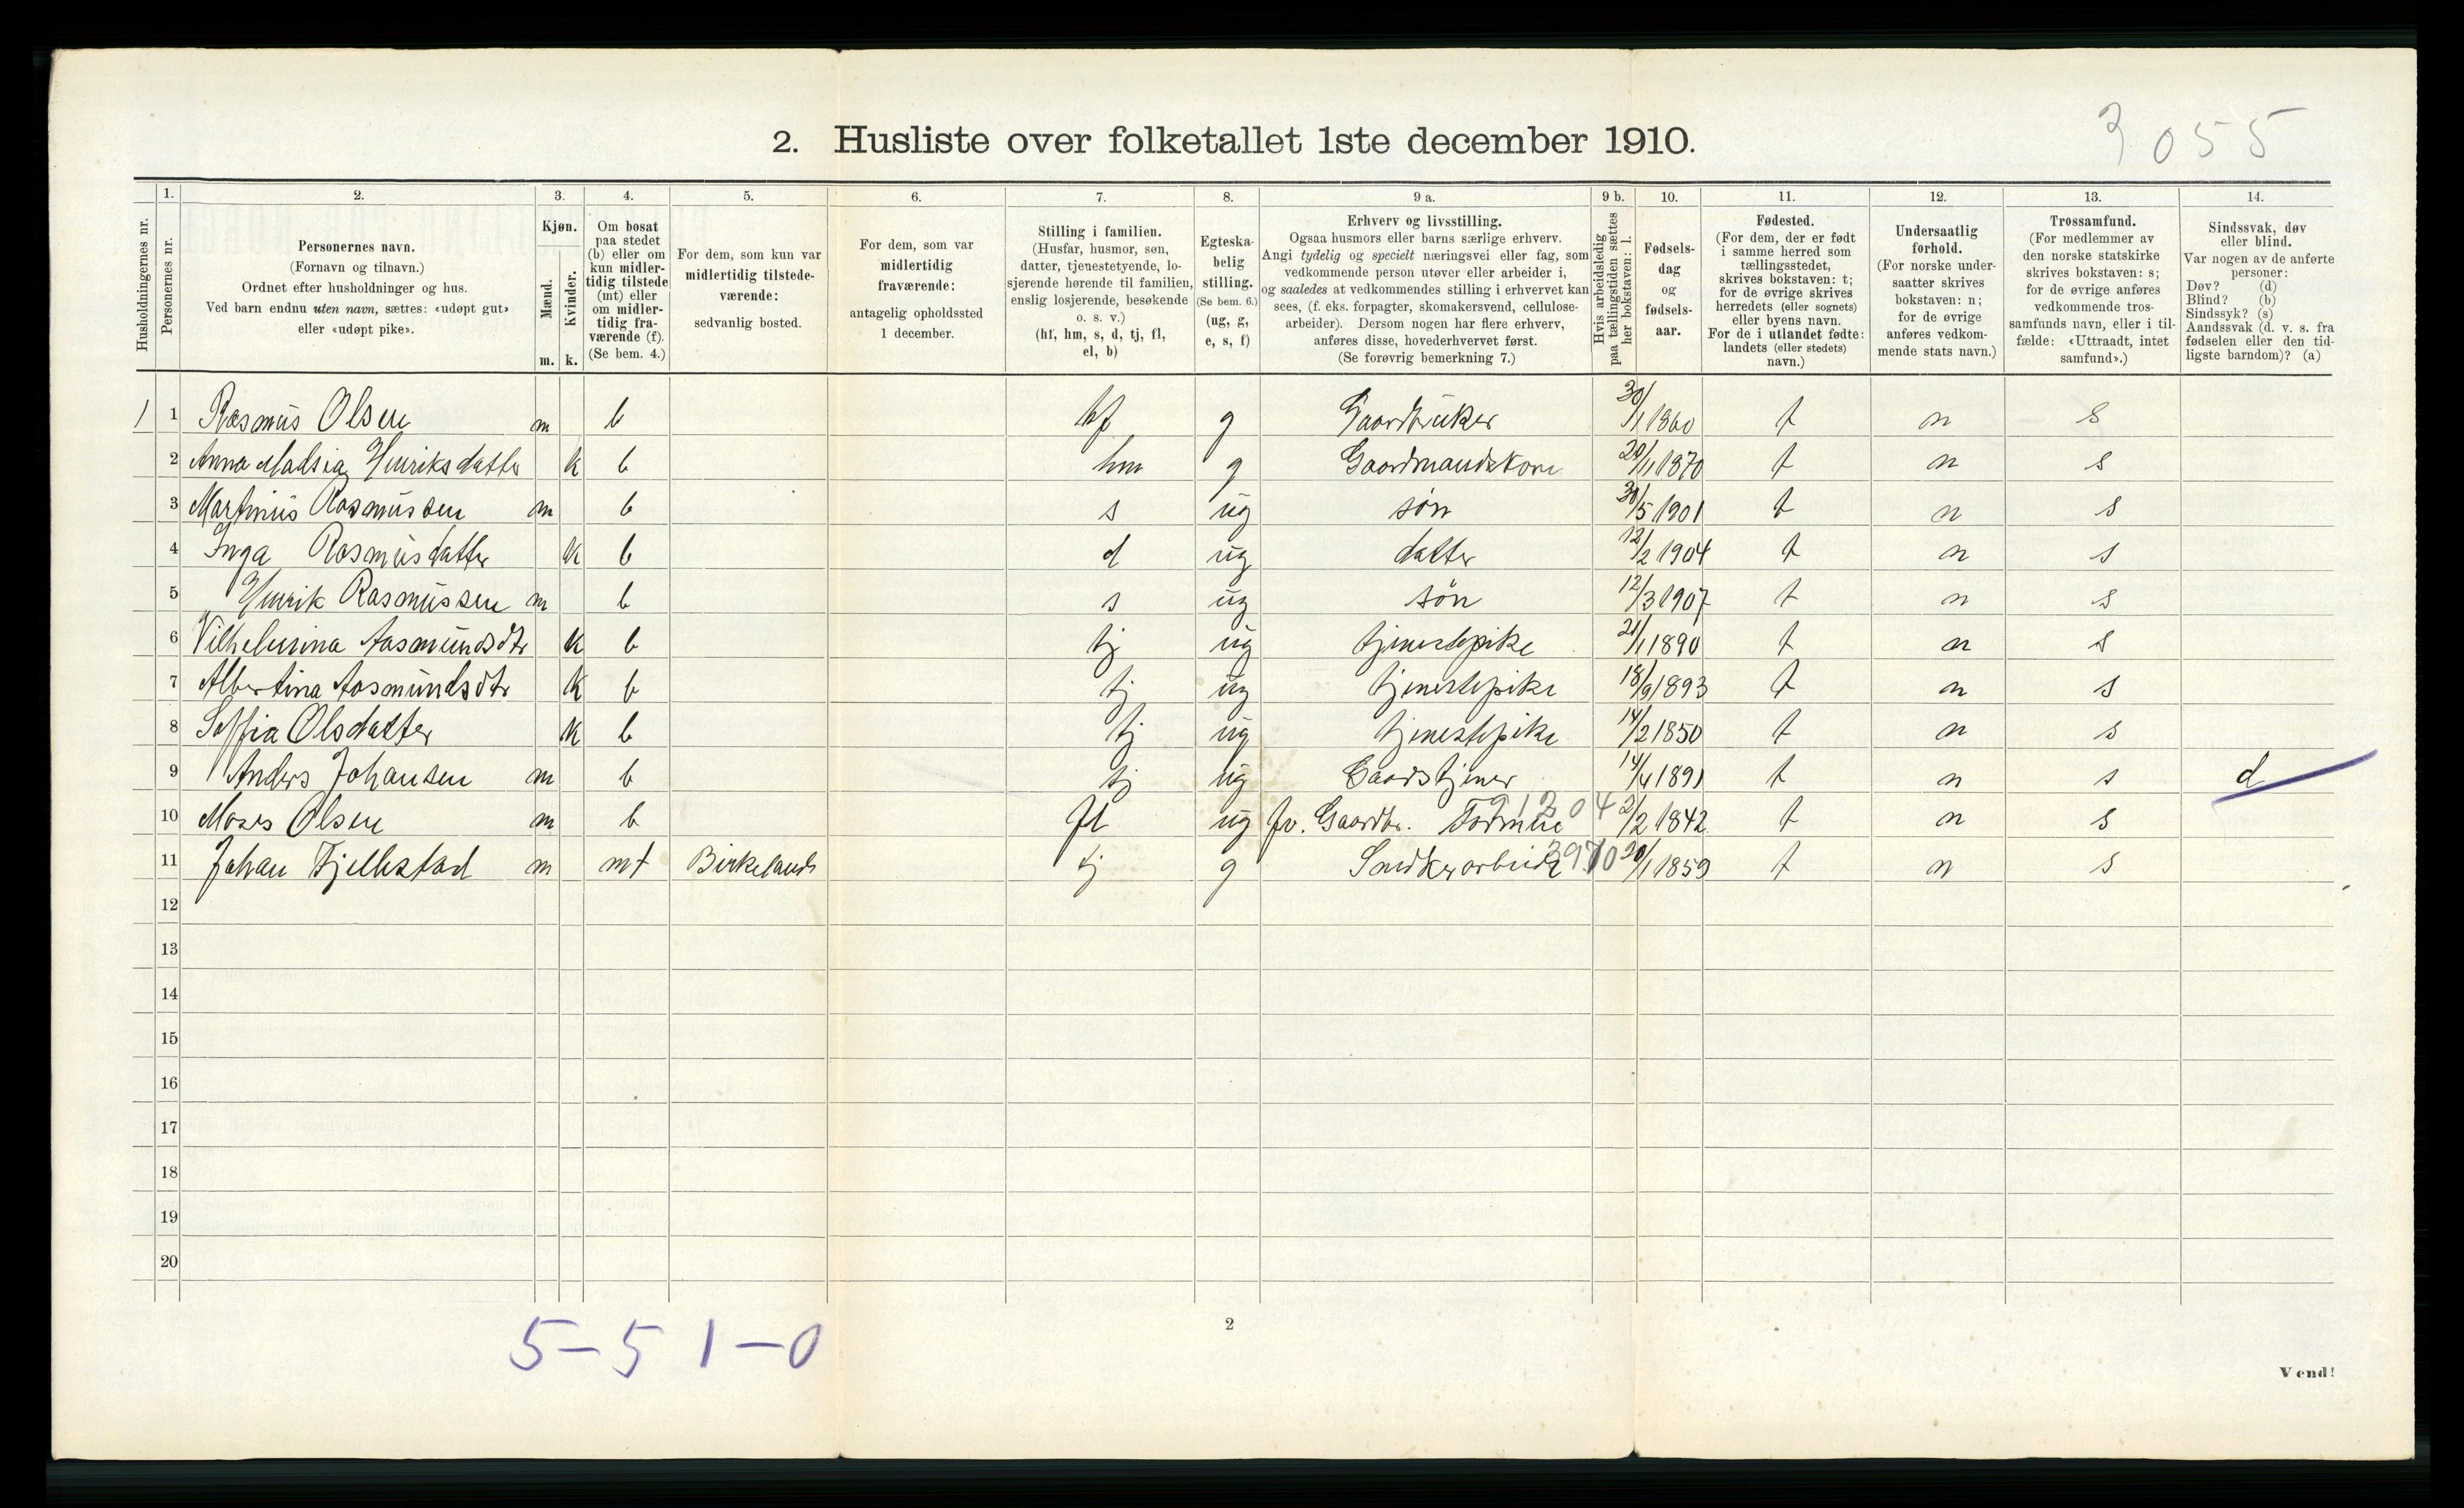 3055
2. Husliste over folketallet 1ste december 1910.
Husholdningernes nr.
1. Personernes nr.
2. Personernes navn. (Fornavn og tilnavn.) Ordnet efter husholdninger og hus. Ved barn endnu uten navn, sættes: «udøpt gut» eller «udøpt pike».
3. Kjøn. Mænd. m. Kvinder. k.
4. Om bosat paa stedet (b) eller om kun midler-tidig tilstede (mt) eller om midler-tidig fra-værende (f). (Se bem. 4.)
5. For dem, som kun var midlertidig tilstede-værende: sedvanlig bosted.
6. For dem, som var midlertidig fraværende: antagelig opholdssted 1 december.
7. Stilling i familien. (Husfar, husmor, søn, datter, tjenestetyende, lo-sjerende hørende til familien, enslig losjerende, besøkende o. s. v.) (hf, hm, s, d, tj, fl, el, b)
8. Egteska-belig stilling. (Se bem. 6.) (ug, g, e, s, f)
9 a. Erhverv og livsstilling. Ogsaa husmors eller barns særlige erhverv. Angi tydelig og specielt næringsvei eller fag, som vedkommende person utøver eller arbeider i, og saaledes at vedkommendes stilling i erhvervet kan sees, (f. eks. forpagter, skomakersvend, cellulose-arbeider). Dersom nogen har flere erhverv, anføres disse, hovederhvervet først. (Se forøvrig bemerkning 7.)
9 b. Hvis arbeidsledig paa tællingstiden sættes her bokstaven: l.
10. Fødsels-dag og fødsels-aar.
11. Fødested. (For dem, der er født i samme herred som tællingsstedet, skrives bokstaven: t; for de øvrige skrives herredets (eller sognets) eller byens navn. For de i utlandet fødte: landets (eller stedets) navn.)
12. Undersaatlig forhold. (For norske under-saatter skrives bokstaven: n; for de øvrige anføres vedkom-mende stats navn.)
13. Trossamfund. (For medlemmer av den norske statskirke skrives bokstaven: s; for de øvrige anføres vedkommende tros-samfunds navn, eller i til-fælde: «Uttraadt, intet samfund».)
14. Sindssvak, døv eller blind. Var nogen av de anførte personer: Døv? (d) Blind? (b) Sindssyk? (s) Aandssvak (d. v. s. fra fødselen eller den tid-ligste barndom)? (a)
1 1 Rasmus Olsen m b hf g Gaardbruker 30/1 1860 t n s
2 Anna Malsia Henriksdatter k b hm g Gaardmandskone 20/11 1870 t n s
3 Martinius Rasmussen m b s ug søn 30/5 1901 t n s
4 Inga Rasmusdatter k b d ug datter 12/2 1904 t n s
5 Henrik Rasmussen m b s ug søn 12/3 1907 t n s
6 Vilhelmina Aasmundsdtr k b tj ug tjenestepike 21/1 1890 t n s
7 Albertina Aasmundsdtr k b tj ug tjenestepike 18/9 1893 t n s
8 Soffia Olsdatter k b tj ug tjenestepike 14/2 1850 t n s
9 Anders Johansen m b tj ug Gaardstjener 14/4 1891 t n s d
10 Moses Olsen m b fl ug fv. Gaardbr. Formue 2/2 1842 t n s
11 Johan Fjellestad m mt Birkeland tj g Snedkerarbeide 3970 20/1 1859 t n s
12
13
14
15
16
17
18
19
20
5-5 1-0
2
Vend!